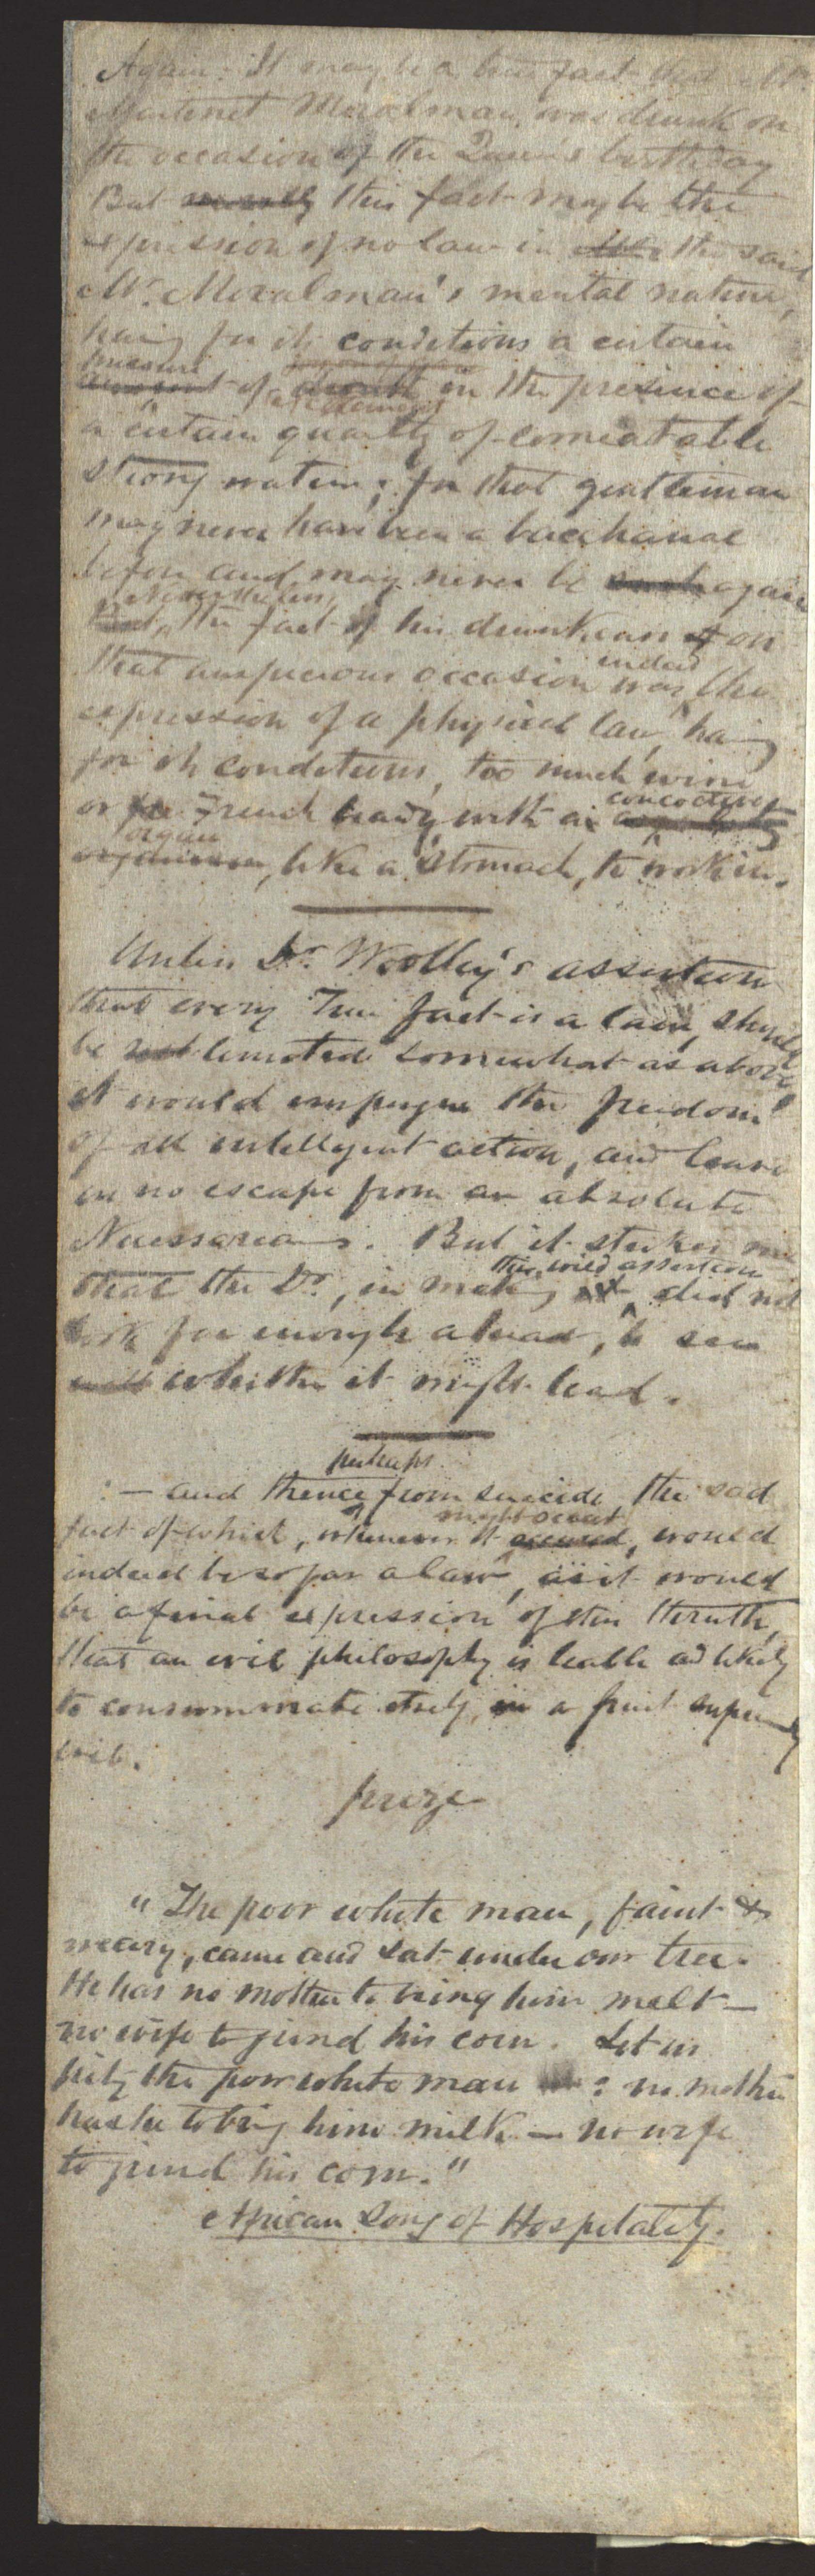 Again: It may be a true fact that Mr.
Martinet Moralman, was drunk on
the occasion of the Queen's birthday
But this fact may be the
expression of no law in the said
Mr. Moralman's mental nature,
having for its conditions a certain
measure
of in the presence of
a certain quantity of comeatable
strong waters; for that gentleman
may never have been a bacchanal
before and may never be such again
Nevertheless,
But, the fact of his drunkenness on
indeed
that auspicious occasion was, the
expression of a physical law, having
for its conditions, too much wine
concoctive
or French brandy, with a
organ
organism, like a stomach, to work in.
Unless Dr. Woolley's assertion
that every True fact is a law, should
be not limited somewhat as above,
it would impugn the freedom
of all intelligent action, and leave
us no escape from an absolute
Necessarianism. But it strikes me
this wild assertion
that the Dr., in making it, did not
look far enough ahead, to see
well whither it might lead.
perhaps
— and thence from suicide, the sad
might occur
fact of which, whenever it occured, would
indeed be so far a law, as it would
be a final expression of the truth,
that an evil philosophy is liable and likely
to consummate itself, in a fruit supremely
evil.
furze
"The poor white man, faint &
weary, came and sat under our tree.
He has no mother to bring him milk —
no wife to grind his corn. Let us
pity the poor white man : no mother
has he to bring him milk — no wife
to grind his corn."
African Song of Hospitality.